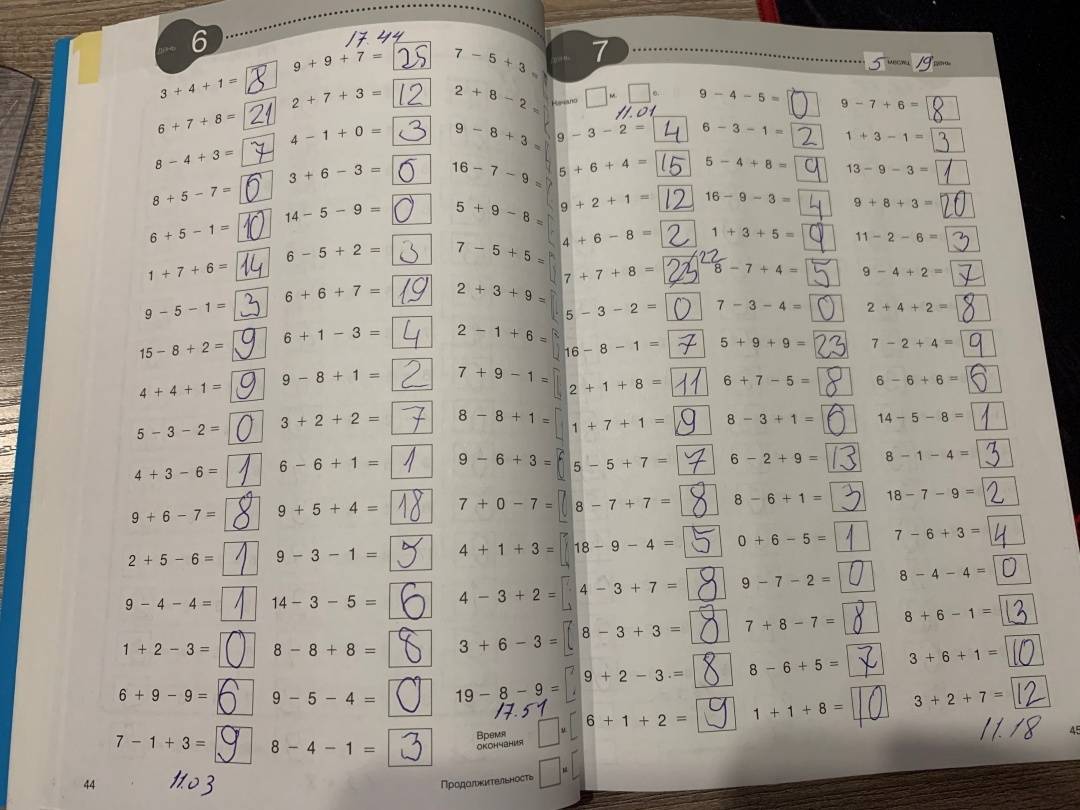 день 6
17.44
3 + 4 + 1 = 8
6 + 7 + 8 = 21
8 − 4 + 3 = 7
8 + 5 − 7 = 6
6 + 5 − 1 = 10
1 + 7 + 6 = 14
9 − 5 − 1 = 3
15 − 8 + 2 = 9
4 + 4 + 1 = 9
5 − 3 − 2 = 0
4 + 3 − 6 = 1
9 + 6 − 7 = 8
2 + 5 − 6 = 1
9 − 4 − 4 = 1
1 + 2 − 3 = 0
6 + 9 − 9 = 6
7 − 1 + 3 = 9
9 + 9 + 7 = 25
2 + 7 + 3 = 12
4 − 1 + 0 = 3
3 + 6 − 3 = 6
14 − 5 − 9 = 0
6 − 5 + 2 = 3
6 + 6 + 7 = 19
6 + 1 − 3 = 4
9 − 8 + 1 = 2
3 + 2 + 2 = 7
6 − 6 + 1 = 1
9 + 5 + 4 = 18
9 − 3 − 1 = 5
14 − 3 − 5 = 6
8 − 8 + 8 = 8
9 − 5 − 4 = 0
8 − 4 − 1 = 3
7 − 5 + 3 =
2 + 8 − 2 =
9 − 8 + 3 =
16 − 7 − 9 =
5 + 9 − 8 =
7 − 5 + 5 =
2 + 3 + 9 =
2 − 1 + 6 =
7 + 9 − 1 =
8 − 8 + 1 =
9 − 6 + 3 =
7 + 0 − 7 =
4 + 1 + 3 =
4 − 3 + 2 =
3 + 6 − 3 =
19 − 8 − 9 =
17.51
Время окончания м.
Продолжительность м.
11.03
44
день 7
5 месяц 19 день
Начало м. с.
11.01
9 − 3 − 2 = 4
5 + 6 + 4 = 15
9 + 2 + 1 = 12
4 + 6 − 8 = 2
7 + 7 + 8 = 23 /22
5 − 3 − 2 = 0
16 − 8 − 1 = 7
2 + 1 + 8 = 11
1 + 7 + 1 = 9
5 − 5 + 7 = 7
8 − 7 + 7 = 8
18 − 9 − 4 = 5
4 − 3 + 7 = 8
8 − 3 + 3 = 8
9 + 2 − 3 = 8
6 + 1 + 2 = 9
9 − 4 − 5 = 0
6 − 3 − 1 = 2
5 − 4 + 8 = 9
16 − 9 − 3 = 4
1 + 3 + 5 = 9
8 − 7 + 4 = 5
7 − 3 − 4 = 0
5 + 9 + 9 = 23
6 + 7 − 5 = 8
8 − 3 + 1 = 6
6 − 2 + 9 = 13
8 − 6 + 1 = 3
0 + 6 − 5 = 1
9 − 7 − 2 = 0
7 + 8 − 7 = 8
8 − 6 + 5 = 7
1 + 1 + 8 = 10
9 − 7 + 6 = 8
1 + 3 − 1 = 3
13 − 9 − 3 = 1
9 + 8 + 3 = 20
11 − 2 − 6 = 3
9 − 4 + 2 = 7
2 + 4 + 2 = 8
7 − 2 + 4 = 9
6 − 6 + 6 = 6
14 − 5 − 8 = 1
8 − 1 − 4 = 3
18 − 7 − 9 = 2
7 − 6 + 3 = 4
8 − 4 − 4 = 0
8 + 6 − 1 = 13
3 + 6 + 1 = 10
3 + 2 + 7 = 12
11.18
45